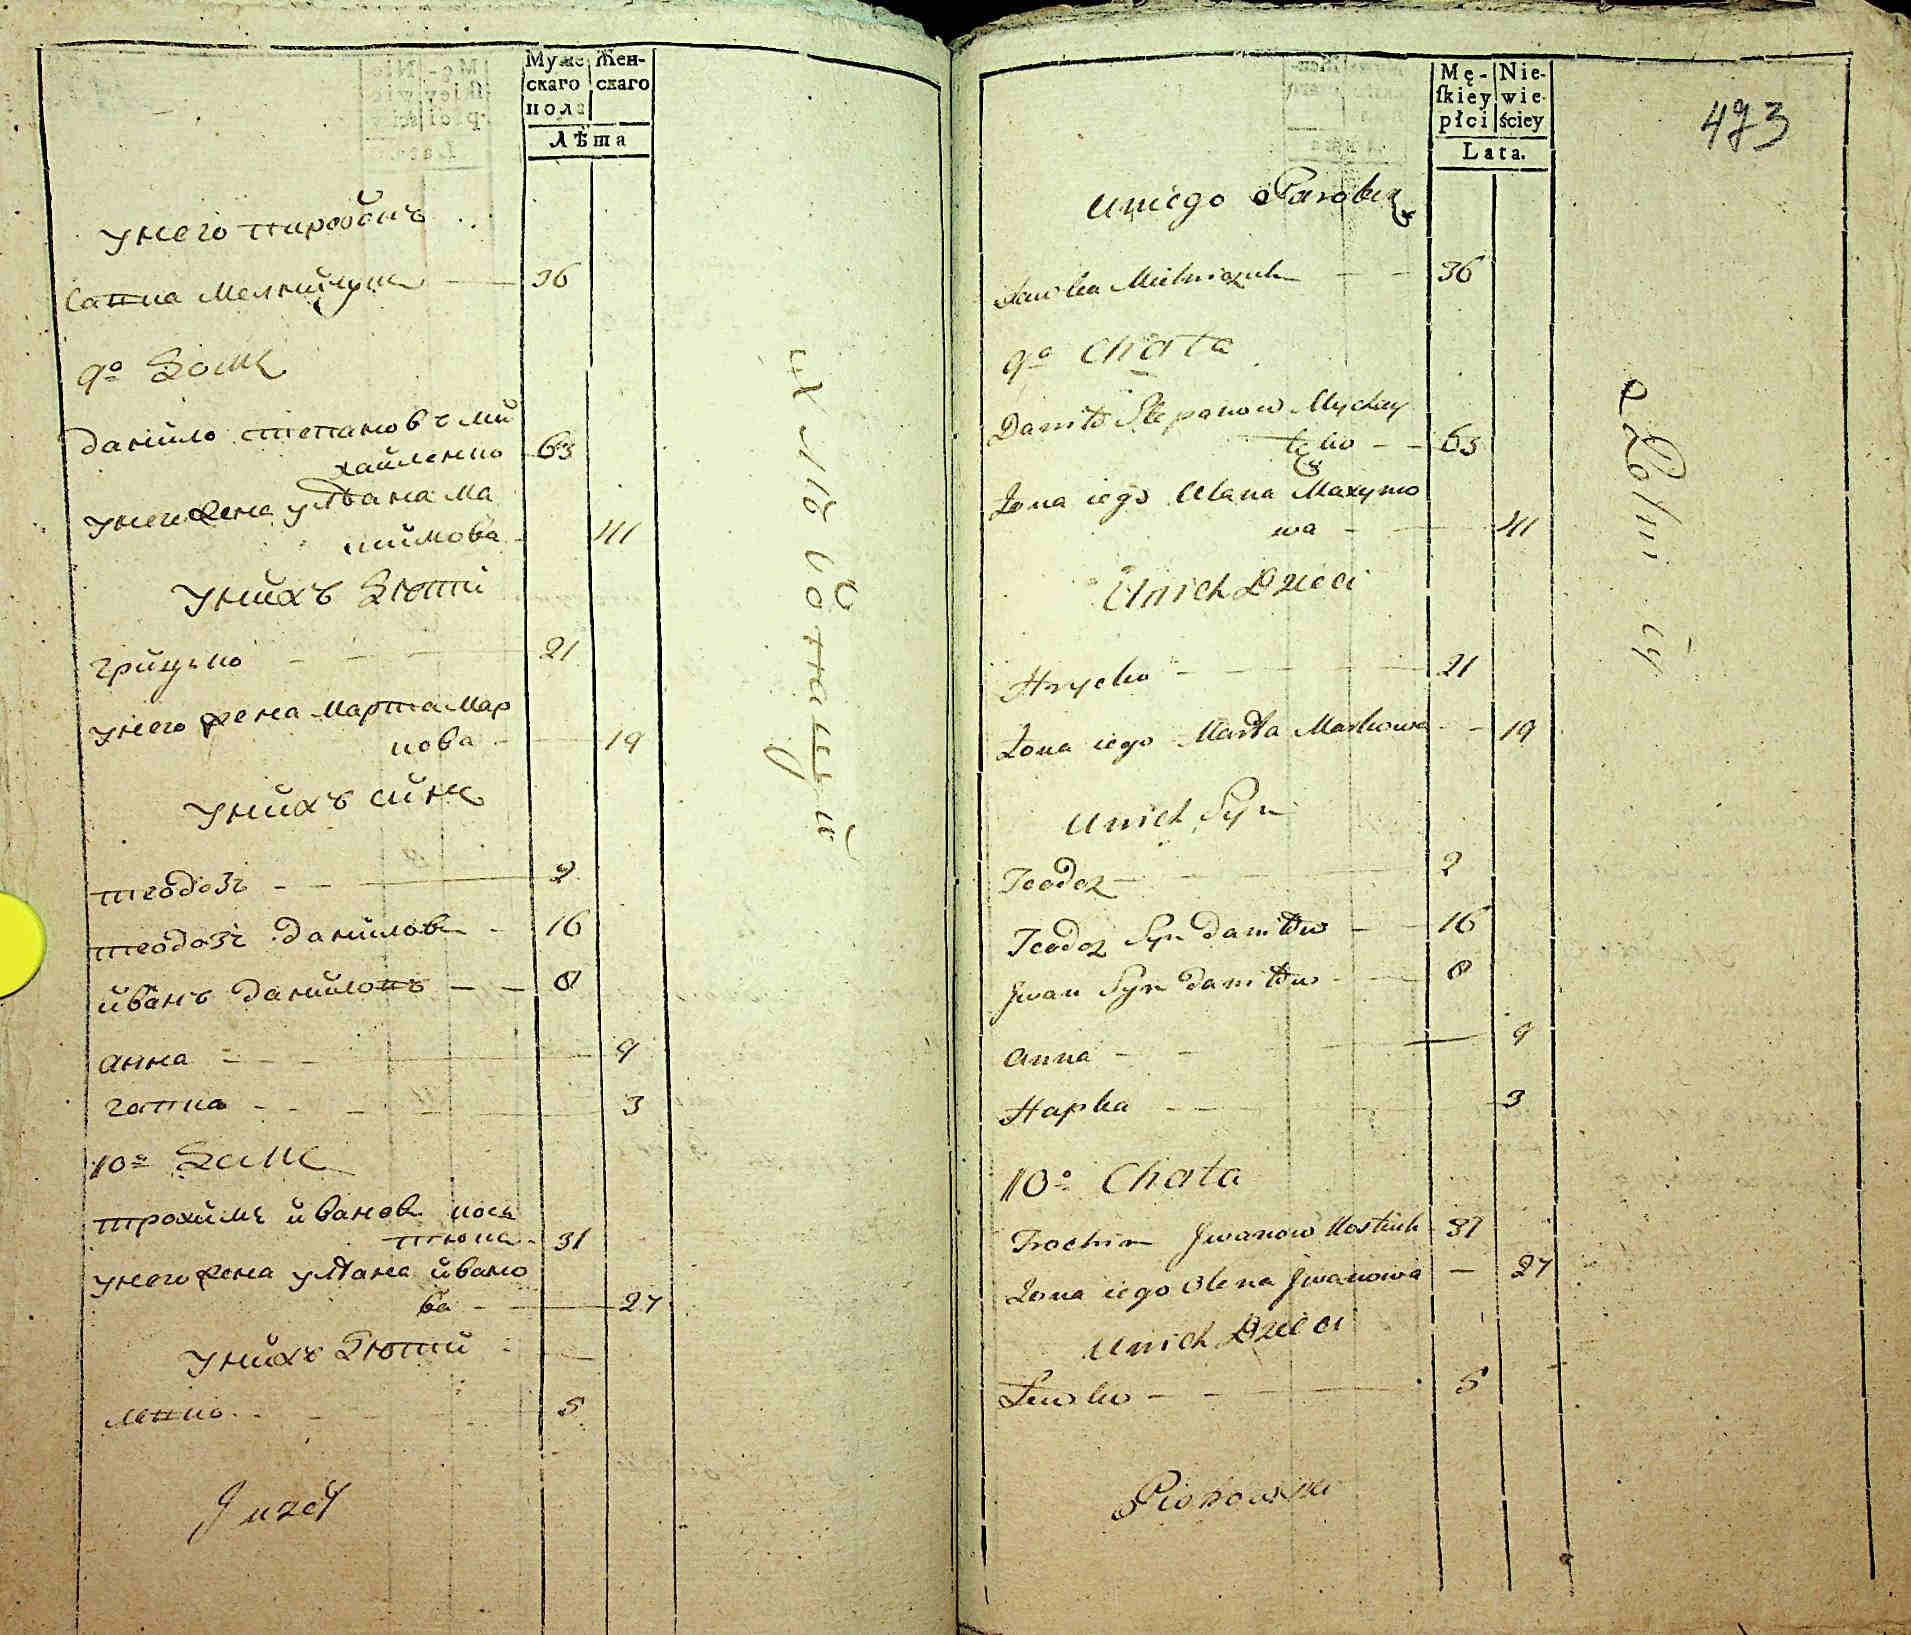 Муже
скаго
пола
Жен-
скаго
Лѣта
унего паробокъ
Сапка Мелничук 36
9º Домъ
данило степановъ ми
хайленко 63
унего жена уляна ма
ксимова 41
унихъ дѣти
грицко 21
унего жена марта мар
кова 19
унихъ синъ
теодозъ 2
теодозъ данилов 16
иванъ данилопъ 8
анна 9
гапка 3
10º Домъ
трохимъ иванов кос
тюка 31
унего жена уляна ивано
ва 27
унихъ дѣти
лепко 5
Juzef
Mę-
ſkiey
płci
Nie-
wie-
ściey
Lata.
473
unięgo Parobek
Sawka Mielniczuk 36
9º Chata
Daniło Stepanow Mychay
łęko 63
Zona iego Ulana Maxymo
wa 41
Unich Dzieci
Hrycko 21
Zona iego Marta Markowa 19
Unich Syn
Teodoz 2
Teodoz Syn daniłow 16
Jwan Syn daniłow 8
anna 9
Hapka 3
10º Chata
Trochim Jwanow Kostiuk 31
Zona iego Olena Jwanowa 27
Unich Dzieci
Lewko 5
Piotrowski